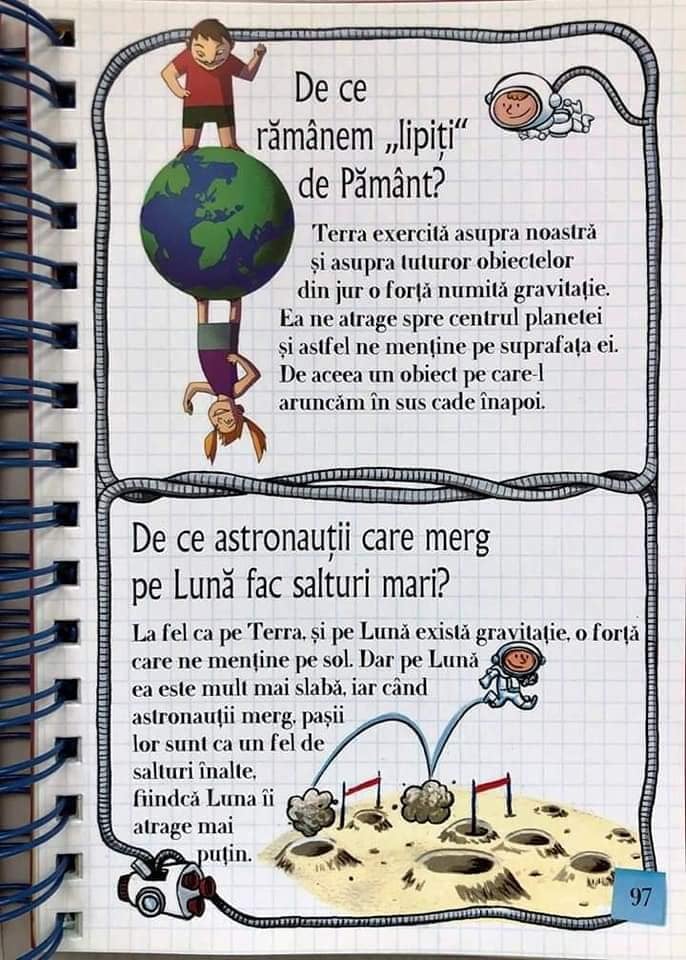 De ce
rămânem „lipiți“
de Pământ?
Terra exercită asupra noastră
și asupra tuturor obiectelor
din jur o forță numită gravitație.
Ea ne atrage spre centrul planetei
și astfel ne menține pe suprafața ei.
De aceea un obiect pe care-l
aruncăm în sus cade înapoi.
De ce astronauții care merg
pe Lună fac salturi mari?
La fel ca pe Terra, și pe Lună există gravitație, o forță
care ne menține pe sol. Dar pe Lună
ea este mult mai slabă, iar când
astronauții merg, pașii
lor sunt ca un fel de
salturi înalte,
fiindcă Luna îi
atrage mai
puțin.
97